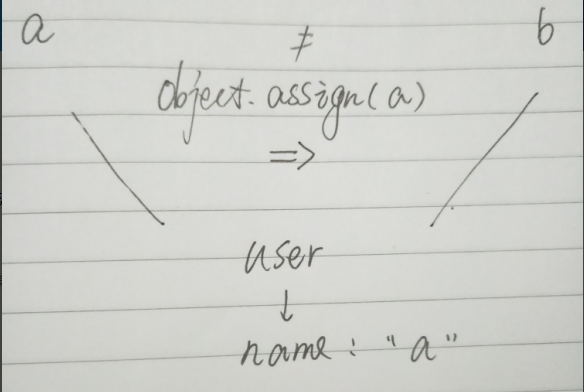 a ≠ b
object.assign(a)
⇒
user
↓
name: "a"